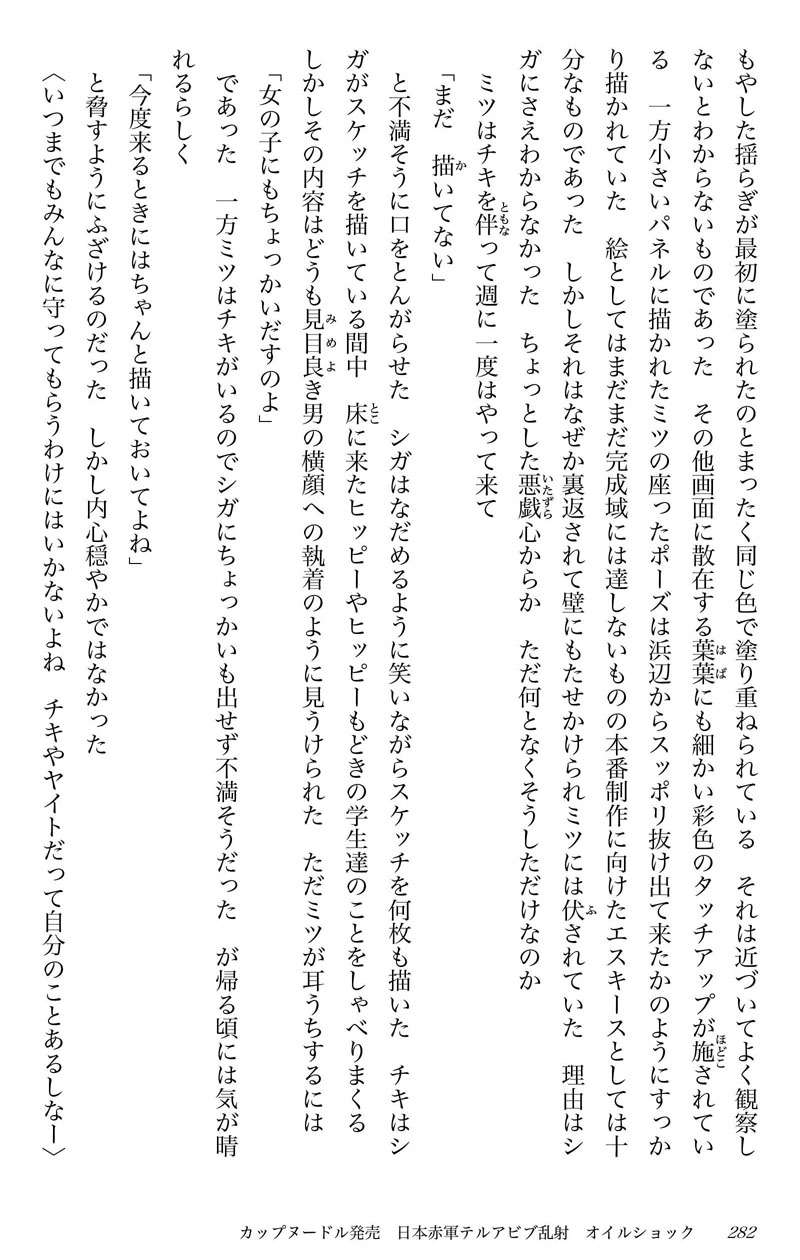 もやした揺らぎが最初に塗られたのとまったく同じ色で塗り重ねられている　それは近づいてよく観察し
ないとわからないものであった　その他画面に散在する葉葉にも細かい彩色のタッチアップが施されてい
る　一方小さいパネルに描かれたミツの座ったポーズは浜辺からスッポリ抜け出て来たかのようにすっか
り描かれていた　絵としてはまだまだ完成域には達しないものの本番制作に向けたエスキースとしては十
分なものであった　しかしそれはなぜか裏返されて壁にもたせかけられミツには伏されていた　理由はシ
ガにさえわからなかった　ちょっとした悪戯心からか　ただ何となくそうしただけなのか
ミツはチキを伴って週に一度はやって来て
「まだ　描いてない」
と不満そうに口をとんがらせた　シガはなだめるように笑いながらスケッチを何枚も描いた　チキはシ
ガがスケッチを描いている間中　床に来たヒッピーやヒッピーもどきの学生達のことをしゃべりまくる
しかしその内容はどうも見目良き男の横顔への執着のように見うけられた　ただミツが耳うちするには
「女の子にもちょっかいだすのよ」
であった　一方ミツはチキがいるのでシガにちょっかいも出せず不満そうだった　が帰る頃には気が晴
れるらしく
「今度来るときにはちゃんと描いておいてよね」
と脅すようにふざけるのだった　しかし内心穏やかではなかった
〈いつまでもみんなに守ってもらうわけにはいかないよね　チキやヤイトだって自分のことあるしなー〉
カップヌードル発売　日本赤軍テルアビブ乱射　オイルショック　282